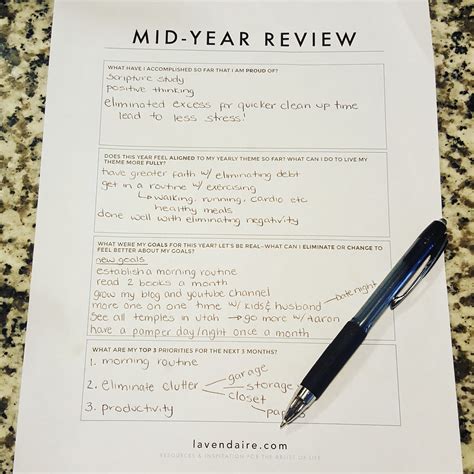 MID-YEAR REVIEW
WHAT HAVE I ACCOMPLISHED SO FAR THAT I AM PROUD OF?
scripture study
positive thinking
eliminated excess for quicker clean up time
lead to less stress!
DOES THIS YEAR FEEL ALIGNED TO MY YEARLY THEME SO FAR? WHAT CAN I DO TO LIVE MY
THEME MORE FULLY?
have greater faith w/ eliminating debt
get in a routine w/ exercising
walking, running, cardio etc
healthy meals
done well with eliminating negativity
WHAT WERE MY GOALS FOR THIS YEAR? LET'S BE REAL–WHAT CAN I ELIMINATE OR CHANGE TO
FEEL BETTER ABOUT MY GOALS?
new goals
establish a morning routine
read 2 books a month
grow my blog and youtube channel
more one on one time w/ kids & husband date night
see all temples in Utah → go more w/ Aaron
have a pamper day/night once a month
WHAT ARE MY TOP 3 PRIORITIES FOR THE NEXT 3 MONTHS?
1. morning routine
2. eliminate clutter garage
storage
closet
3. productivity
lavendaire.com
RESOURCES & INSPIRATION FOR THE ARTIST OF LIFE